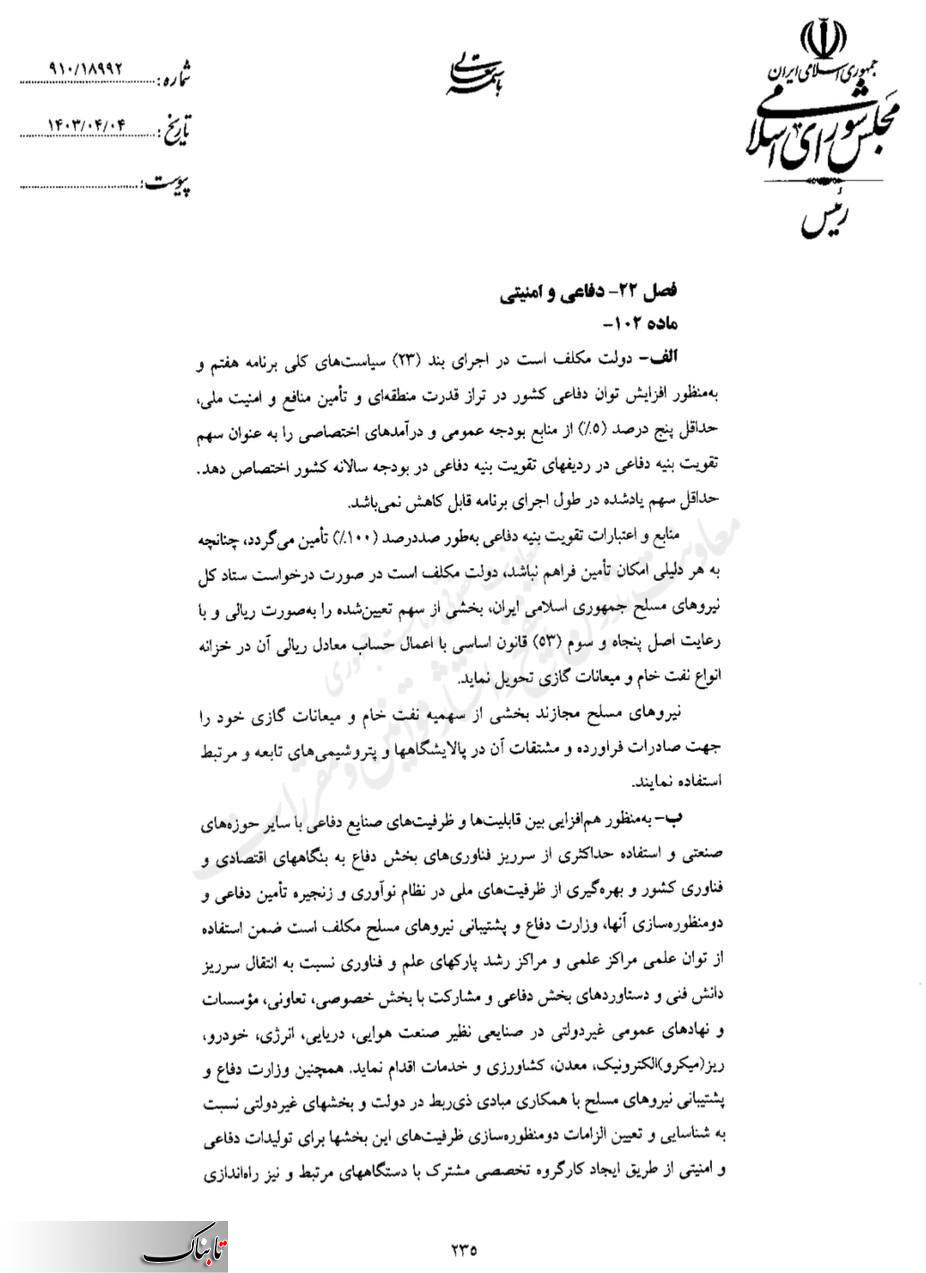 جمهوری اسلامی ایران
مجلس شورای اسلامی
رئیس
باسمه تعالی
شماره: ۹۱۰/۱۸۹۹۲
تاریخ: ۱۴۰۳/۰۴/۰۴
پیوست:
فصل ۲۲- دفاعی و امنیتی
ماده ۱۰۲-
الف- دولت مکلف است در اجرای بند (۲۳) سیاست‌های کلی برنامه هفتم و
به‌منظور افزایش توان دفاعی کشور در تراز قدرت منطقه‌ای و تأمین منافع و امنیت ملی،
حداقل پنج درصد (۵٪) از منابع بودجه عمومی و درآمدهای اختصاصی را به عنوان سهم
تقویت بنیه دفاعی در ردیفهای تقویت بنیه دفاعی در بودجه سالانه کشور اختصاص دهد.
حداقل سهم یادشده در طول اجرای برنامه قابل کاهش نمی‌باشد.
منابع و اعتبارات تقویت بنیه دفاعی به‌طور صددرصد (۱۰۰٪) تأمین می‌گردد، چنانچه
به هر دلیلی امکان تأمین فراهم نباشد، دولت مکلف است در صورت درخواست ستاد کل
نیروهای مسلح جمهوری اسلامی ایران، بخشی از سهم تعیین‌شده را به‌صورت ریالی و با
رعایت اصل پنجاه و سوم (۵۳) قانون اساسی با اعمال حساب معادل ریالی آن در خزانه
انواع نفت خام و میعانات گازی تحویل نماید.
نیروهای مسلح مجازند بخشی از سهمیه نفت خام و میعانات گازی خود را
جهت صادرات فراورده و مشتقات آن در پالایشگاهها و پتروشیمی‌های تابعه و مرتبط
استفاده نمایند.
ب- به‌منظور هم‌افزایی بین قابلیت‌ها و ظرفیت‌های صنایع دفاعی با سایر حوزه‌های
صنعتی و استفاده حداکثری از سرریز فناوری‌های بخش دفاع به بنگاههای اقتصادی و
فناوری کشور و بهره‌گیری از ظرفیت‌های ملی در نظام نوآوری و زنجیره تأمین دفاعی و
دومنظوره‌سازی آنها، وزارت دفاع و پشتیبانی نیروهای مسلح مکلف است ضمن استفاده
از توان علمی مراکز علمی و مراکز رشد پارکهای علم و فناوری نسبت به انتقال سرریز
دانش فنی و دستاوردهای بخش دفاعی و مشارکت با بخش خصوصی، تعاونی، مؤسسات
و نهادهای عمومی غیردولتی در صنایعی نظیر صنعت هوایی، دریایی، انرژی، خودرو،
ریز(میکرو)الکترونیک، معدن، کشاورزی و خدمات اقدام نماید. همچنین وزارت دفاع و
پشتیبانی نیروهای مسلح با همکاری مبادی ذی‌ربط در دولت و بخشهای غیردولتی نسبت
به شناسایی و تعیین الزامات دومنظوره‌سازی ظرفیت‌های این بخشها برای تولیدات دفاعی
و امنیتی از طریق ایجاد کارگروه تخصصی مشترک با دستگاههای مرتبط و نیز راه‌اندازی
۲۳۵
تابناک